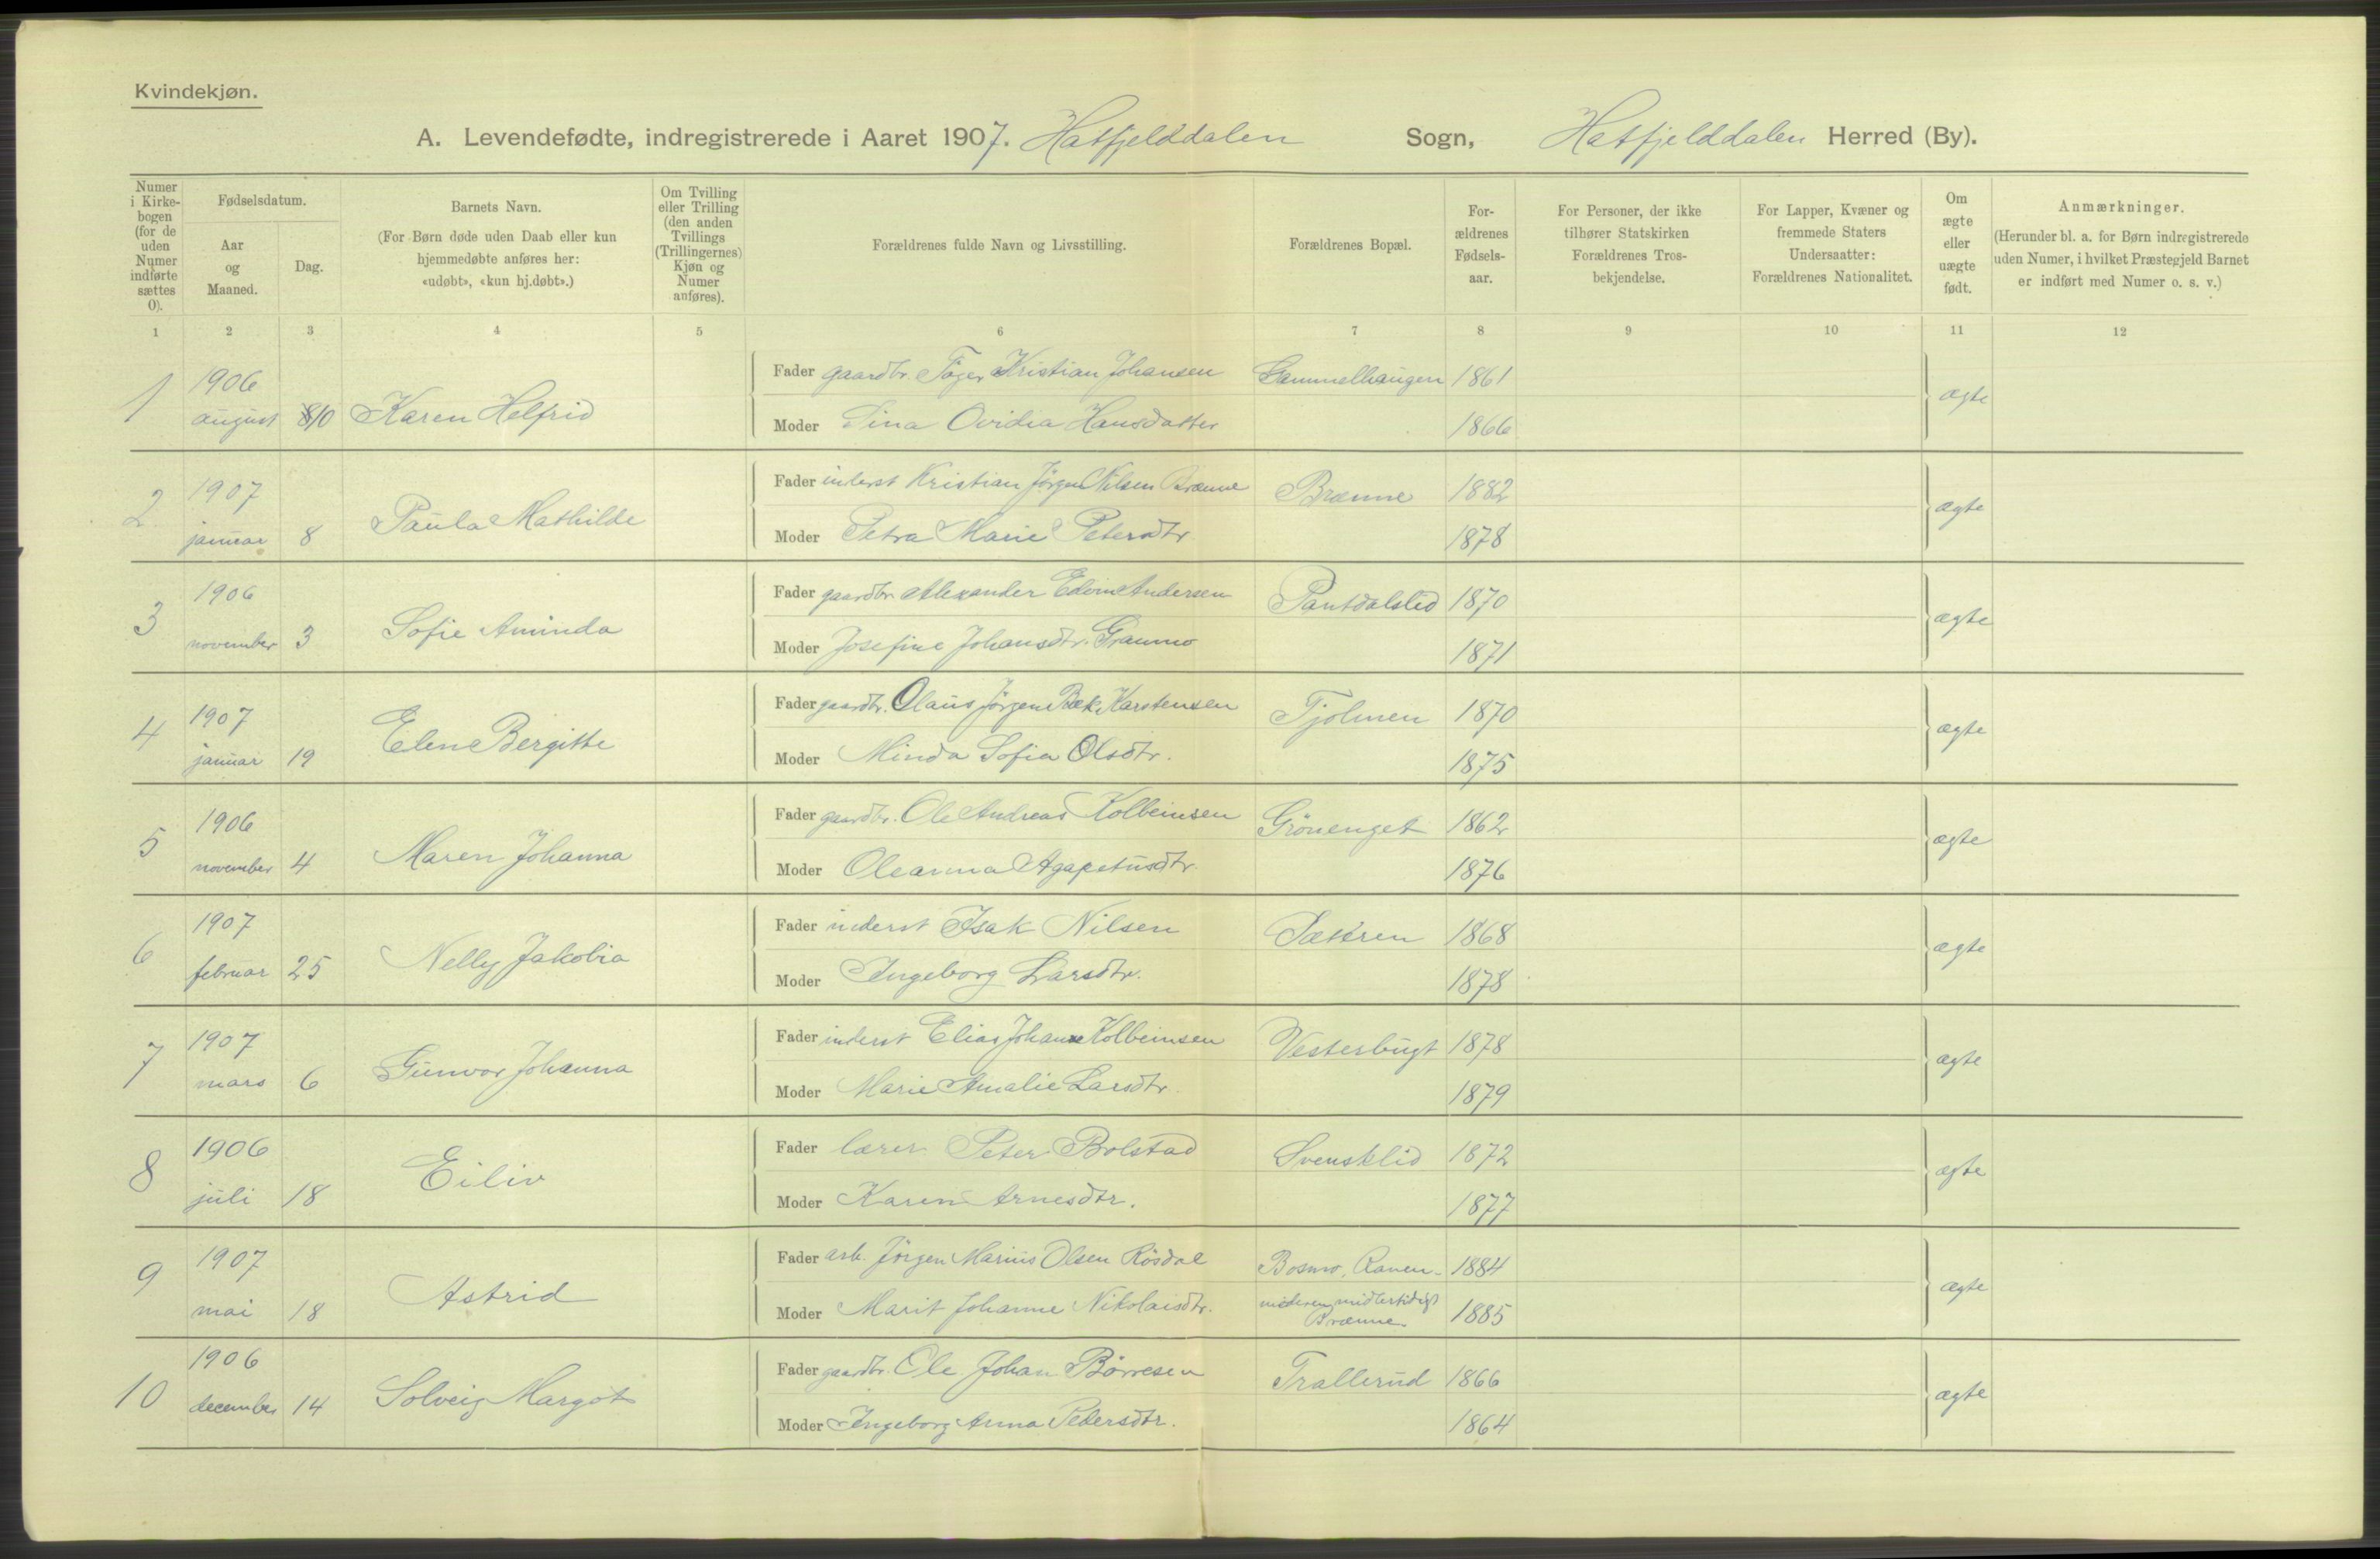 Kvindekjøn.
A. Levendefødte, indregistrerede i Aaret 1907. Hatfjelddalen Sogn, Hatfjelddalen Herred (By).
Numer i Kirkebogen (for de uden Numer indførte sættes 0).
Fødselsdatum.
Aar og Maaned.
Dag.
Barnets Navn.
(For Børn døde uden Daab eller kun hjemmedøbte anføres her: «udøbt», «kun hj.døbt».)
Om Tvilling eller Trilling (den anden Tvillings (Trillingernes) Kjøn og Numer anføres).
Forældrenes fulde Navn og Livsstilling.
Forældrenes Bopæl.
Forældrenes Fødselsaar.
For Personer, der ikke tilhører Statskirken Forældrenes Trosbekjendelse.
For Lapper, Kvæner og fremmede Staters Undersaatter: Forældrenes Nationalitet.
Om ægte eller uægte født.
Anmærkninger.
(Herunder bl. a. for Børn indregistrerede uden Numer, i hvilket Præstegjeld Barnet er indført med Numer o. s. v.)
1 2 3 4 5 6 7 8 9 10 11 12
1 1906 august 10 Karen Helfrid
Fader gaardbr. Kristian Johansen Gammelhaugen 1861
Moder Sina Ovidia Hansdatter 1866
ægte
2 1907 januar 8 Paula Mathilde
Fader inderst Kristian Jörgen Nilsen Brænne Brænne 1882
Moder Petra Marie Petersdtr 1878
ægte
3 1906 november 3 Sofie Aminda
Fader gaardbr. Alexander Edvin Andersen Pantdalslid 1870
Moder Josefine Johansdtr. Granmo 1871
ægte
4 1907 januar 19 Elen Bergitte
Fader gaardbr. Olaus Jörgen Bek Karstensen Tjolmen 1870
Moder Minda Sofia Olsdtr. 1875
ægte
5 1906 november 4 Maren Johanna
Fader gaardbr. Ole Andreas Kolbeinsen Grönenget 1862
Moder Oleanna Agapetusdtr. 1876
ægte
6 1907 februar 25 Nelly Jakobia
Fader inderst Isak Nilsen Sætren 1868
Moder Ingeborg Larsdtr. 1878
ægte
7 1907 mars 6 Gunvor Johanna
Fader inderst Elias Johan Kolbeinsen Vesterbugt 1878
Moder Marie Amalie Larsdtr. 1879
ægte
8 1906 juli 18 Eiliv
Fader lærer Peter Bolstad Svensklid 1872
Moder Karen Arnesdtr. 1877
ægte
9 1907 mai 18 Astrid
Fader arb. Jörgen Marius Olsen Rösdal Bosmo, Ranen 1884
Moder Marit Johanne Nikolaisdtr. moderen midlertidigt Brænne 1885
ægte
10 1906 december 14 Solveig Margot
Fader gaardbr. Ole Johan Börresen Trallerud 1866
Moder Ingeborg Anna Pedersdtr. 1864
ægte